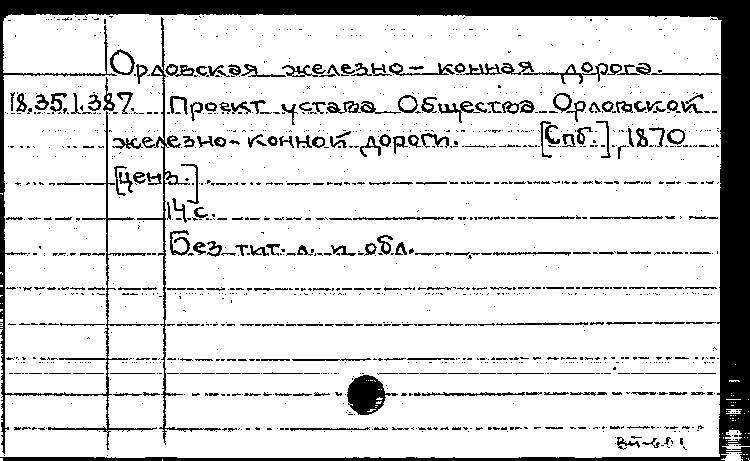 Орловская железно-конная дорога.
18.35.1.387. Проект устава Общества Орловской
железно-конной дороги. [Спб.], 1870
[ценз.].
14 с.
Без тит. л. и обл.